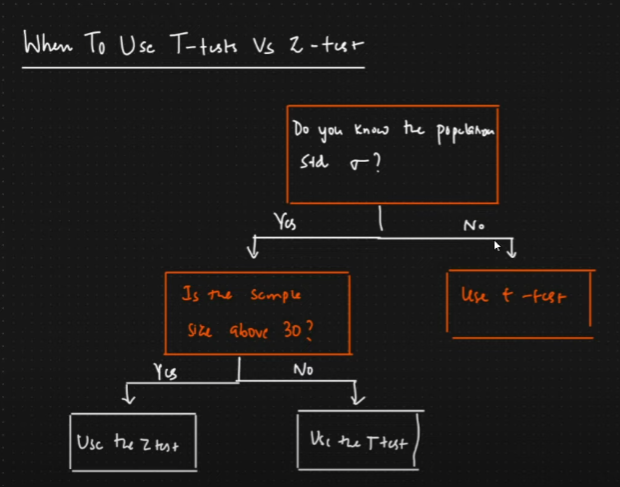 When To Use T-tests Vs Z-test
Do you know the population
std σ?
Yes
No
Is the sample
size above 30?
Use t-test
Yes
No
Use the Z test
Use the T test